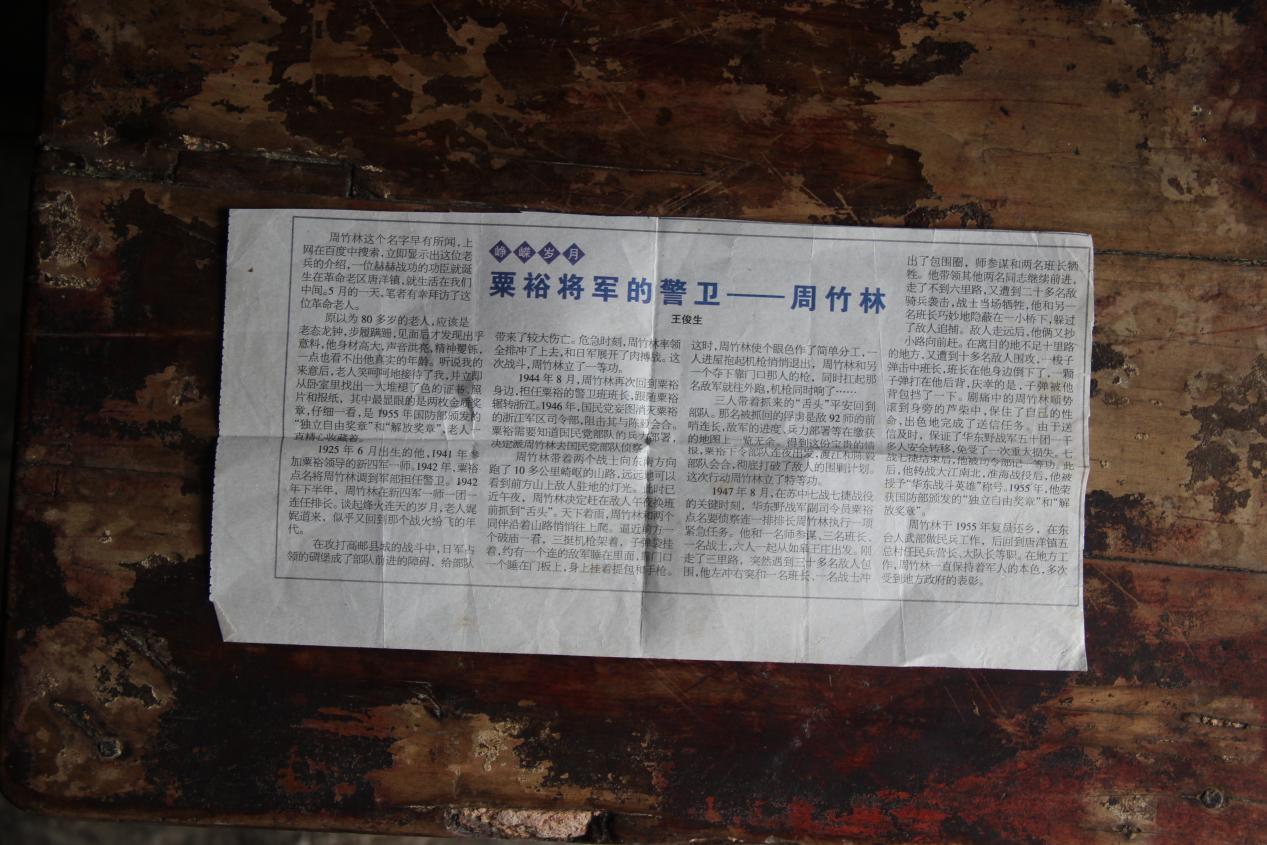 峥嵘岁月
粟裕将军的警卫——周竹林
王俊生
周竹林这个名字早有所闻，上
网在百度中搜索，立即显示出这位老
兵的介绍，一位赫赫战功的功臣就诞
生在革命老区唐洋镇，就生活在我们
中间。5月的一天，笔者有幸拜访了这
位革命老人。
原以为80多岁的老人，应该是
老态龙钟，步履蹒跚，见面后才发现出乎
意料，他身材高大，声音洪亮，精神矍铄，
一点也看不出他真实的年龄。听说我的
来意后，老人笑呵呵地接待了我，并立即
从卧室里找出一大堆褪了色的证书、照
片和报纸，其中最显眼的是两枚金质奖
章，仔细一看，是1955年国防部颁发的
“独立自由奖章”和“解放奖章”，老人一
直精心收藏着。
1925年6月出生的他，1941年参
加粟裕领导的新四军一师。1942年，粟裕
点名将周竹林调到军部担任警卫。1942
年下半年，周竹林在新四军一师一团一
连任排长。谈起烽火连天的岁月，老人娓
娓道来，似乎又回到那个战火纷飞的年
代。
在攻打高邮县城的战斗中，日军占
领的碉堡成了部队前进的障碍，给部队
带来了较大伤亡。危急时刻，周竹林率领
全排冲了上去，和日军展开了肉搏战。这
次战斗，周竹林立了一等功。
1944年8月，周竹林再次回到粟裕
身边，担任粟裕的警卫班班长，跟随粟裕
辗转浙江。1946年，国民党妄图消灭粟裕
的浙江军区司令部，阻击其与陈毅会合。
粟裕需要知道国民党部队的兵力部署，
决定派周竹林去国民党部队侦察。
周竹林带着两个战士向东南方向
跑了10多公里崎岖的山路，远远地可以
看到前方山上敌人驻地的灯光。此时已
近午夜，周竹林决定赶在敌人午夜换班
前抓到“舌头”。天下着雨，周竹林和两个
同伴沿着山路悄悄往上爬。逼近前方一
个破庙一看，三挺机枪架着，子弹安挂
着，约有一个连的敌军睡在里面，庙门口
一个睡在门板上，身上挂着提包和手枪。
这时，周竹林使个眼色作了简单分工，一
人进屋抱起机枪悄悄退出，周竹林和另
一个夺下靠门口那人的枪，同时扛起那
名敌军就往外跑，机枪同时响了……
三人带着抓来的“舌头”平安回到
部队。那名被抓回的俘虏是敌92师的前
哨连长，敌军的进度、兵力部署等在缴获
的地图上一览无余。得到这份宝贵的情
报，粟裕下令部队连夜出发，渡江和陈毅
部队会合，彻底打破了敌人的围剿计划。
这次行动周竹林立了特等功。
1947年8月，在苏中七战七捷战役
的关键时刻，华东野战军副司令员粟裕
点名要侦察连一排排长周竹林执行一项
紧急任务。他和一名师参谋、三名班长、
一名战士，六人一起从如皋王庄出发。刚
走了三里路，突然遇到三十多名敌人包
围，他左冲右突和一名班长，一名战士冲
出了包围圈，师参谋和两名班长牺
牲。他带领其他两名同志继续前进，
走了不到六里路，又遭到二十多名敌
骑兵袭击，战士当场牺牲，他和另一
名班长巧妙地隐蔽在一小桥下，躲过
了敌人追捕。敌人走远后，他俩又抄
小路向前赶。在离目的地不足十里路
的地方，又遭到十多名敌人围攻，一梭子
弹击中班长，班长在他身边倒下了，一颗
子弹打在他后背，庆幸的是，子弹被他
背包挡了一下。剧痛中的周竹林顺势
滚到身旁的芦柴中，保住了自己的性
命，出色地完成了送信任务。由于送
信及时，保证了华东野战军五十团一千
多人安全转移，免受了一次重大损失。七
战七捷结束后，他被司令部记一等功。此
后，他转战大江南北，淮海战役后，他被
授予“华东战斗英雄”称号。1955年，他荣
获国防部颁发的“独立自由奖章”和“解
放奖章”。
周竹林于1955年复员还乡，在东
台人武部做民兵工作，后回到唐洋镇五
总村任民兵营长、大队长等职。在地方工
作，周竹林一直保持着军人的本色，多次
受到地方政府的表彰。